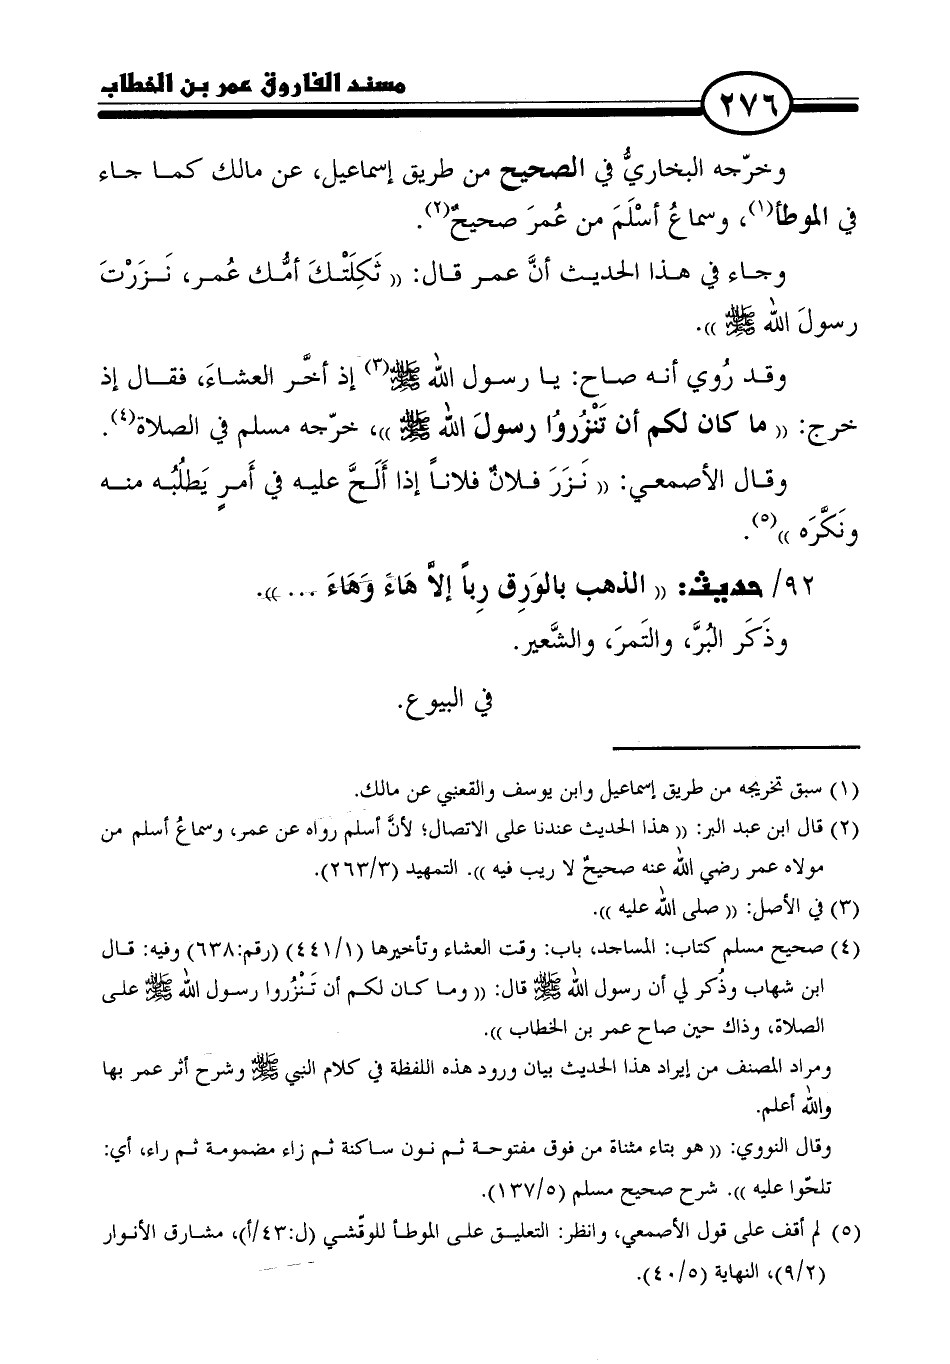 مسند الفاروق عمر بن الخطاب
٢٧٦
وخرّجه البخاريُّ في الصحيح من طريق إسماعيل، عن مالك كما جاء
في الموطأ(١)، وسماعُ أسْلَمَ من عُمرَ صحيحٌ(٢).
وجاء في هذا الحديث أنَّ عمر قال: (( ثَكِلَتْكَ أمُّك عُمر، نَزَرْتَ
رسولَ الله ﷺ )).
وقد رُوي أنه صاح: يا رسول الله ﷺ(٣) إذ أخَّر العشاءَ، فقال إذ
خرج: (( ما كان لكم أن تَنْزُروُا رسولَ الله ﷺ ))، خرّجه مسلم في الصلاة(٤).
وقال الأصمعي: (( نَزَرَ فلانٌ فلاناً إذا أَلَحَّ عليه في أَمرٍ يَطلُبُه منه
ونَكَّرَه ))(٥).
٩٢/ حديث: (( الذهب بالوَرِق رِباً إلاَّ هَاءَ وَهَاءَ ... )).
وذَكَر البُرَّ، والتَمرَ، والشَّعير.
في البيوع.
(١) سبق تخريجه من طريق إسماعيل وابن يوسف والقعنبي عن مالك.
(٢) قال ابن عبد البر: (( هذا الحديث عندنا على الاتصال؛ لأنَّ أسلم رواه عن عمر، وسماعُ أسلم من
مولاه عمر رضي الله عنه صحيحٌ لا ريب فيه )). التمهيد (٢٦٣/٣).
(٣) في الأصل: (( صلى الله عليه )).
(٤) صحيح مسلم كتاب: المساجد، باب: وقت العشاء وتأخيرها (٤٤١/١) (رقم:٦٣٨) وفيه: قال
ابن شهاب وذُكر لي أن رسول الله ﷺ قال: (( وما كان لكم أن تَنْزُروا رسول الله ﷺ على
الصلاة، وذاك حين صاح عمر بن الخطاب )).
ومراد المصنف من إيراد هذا الحديث بيان ورود هذه اللفظة في كلام النبي ﷺ وشرح أثر عمر بها
والله أعلم.
وقال النووي: (( هو بتاء مثناة من فوق مفتوحة ثم نون ساكنة ثم زاء مضمومة ثم راء، أي:
تلحّوا عليه )). شرح صحيح مسلم (١٣٧/٥).
(٥) لم أقف على قول الأصمعي، وانظر: التعليق على الموطأ للوقّشي (ل:٤٣/أ)، مشارق الأنوار
(٩/٢)، النهاية (٤٠/٥).